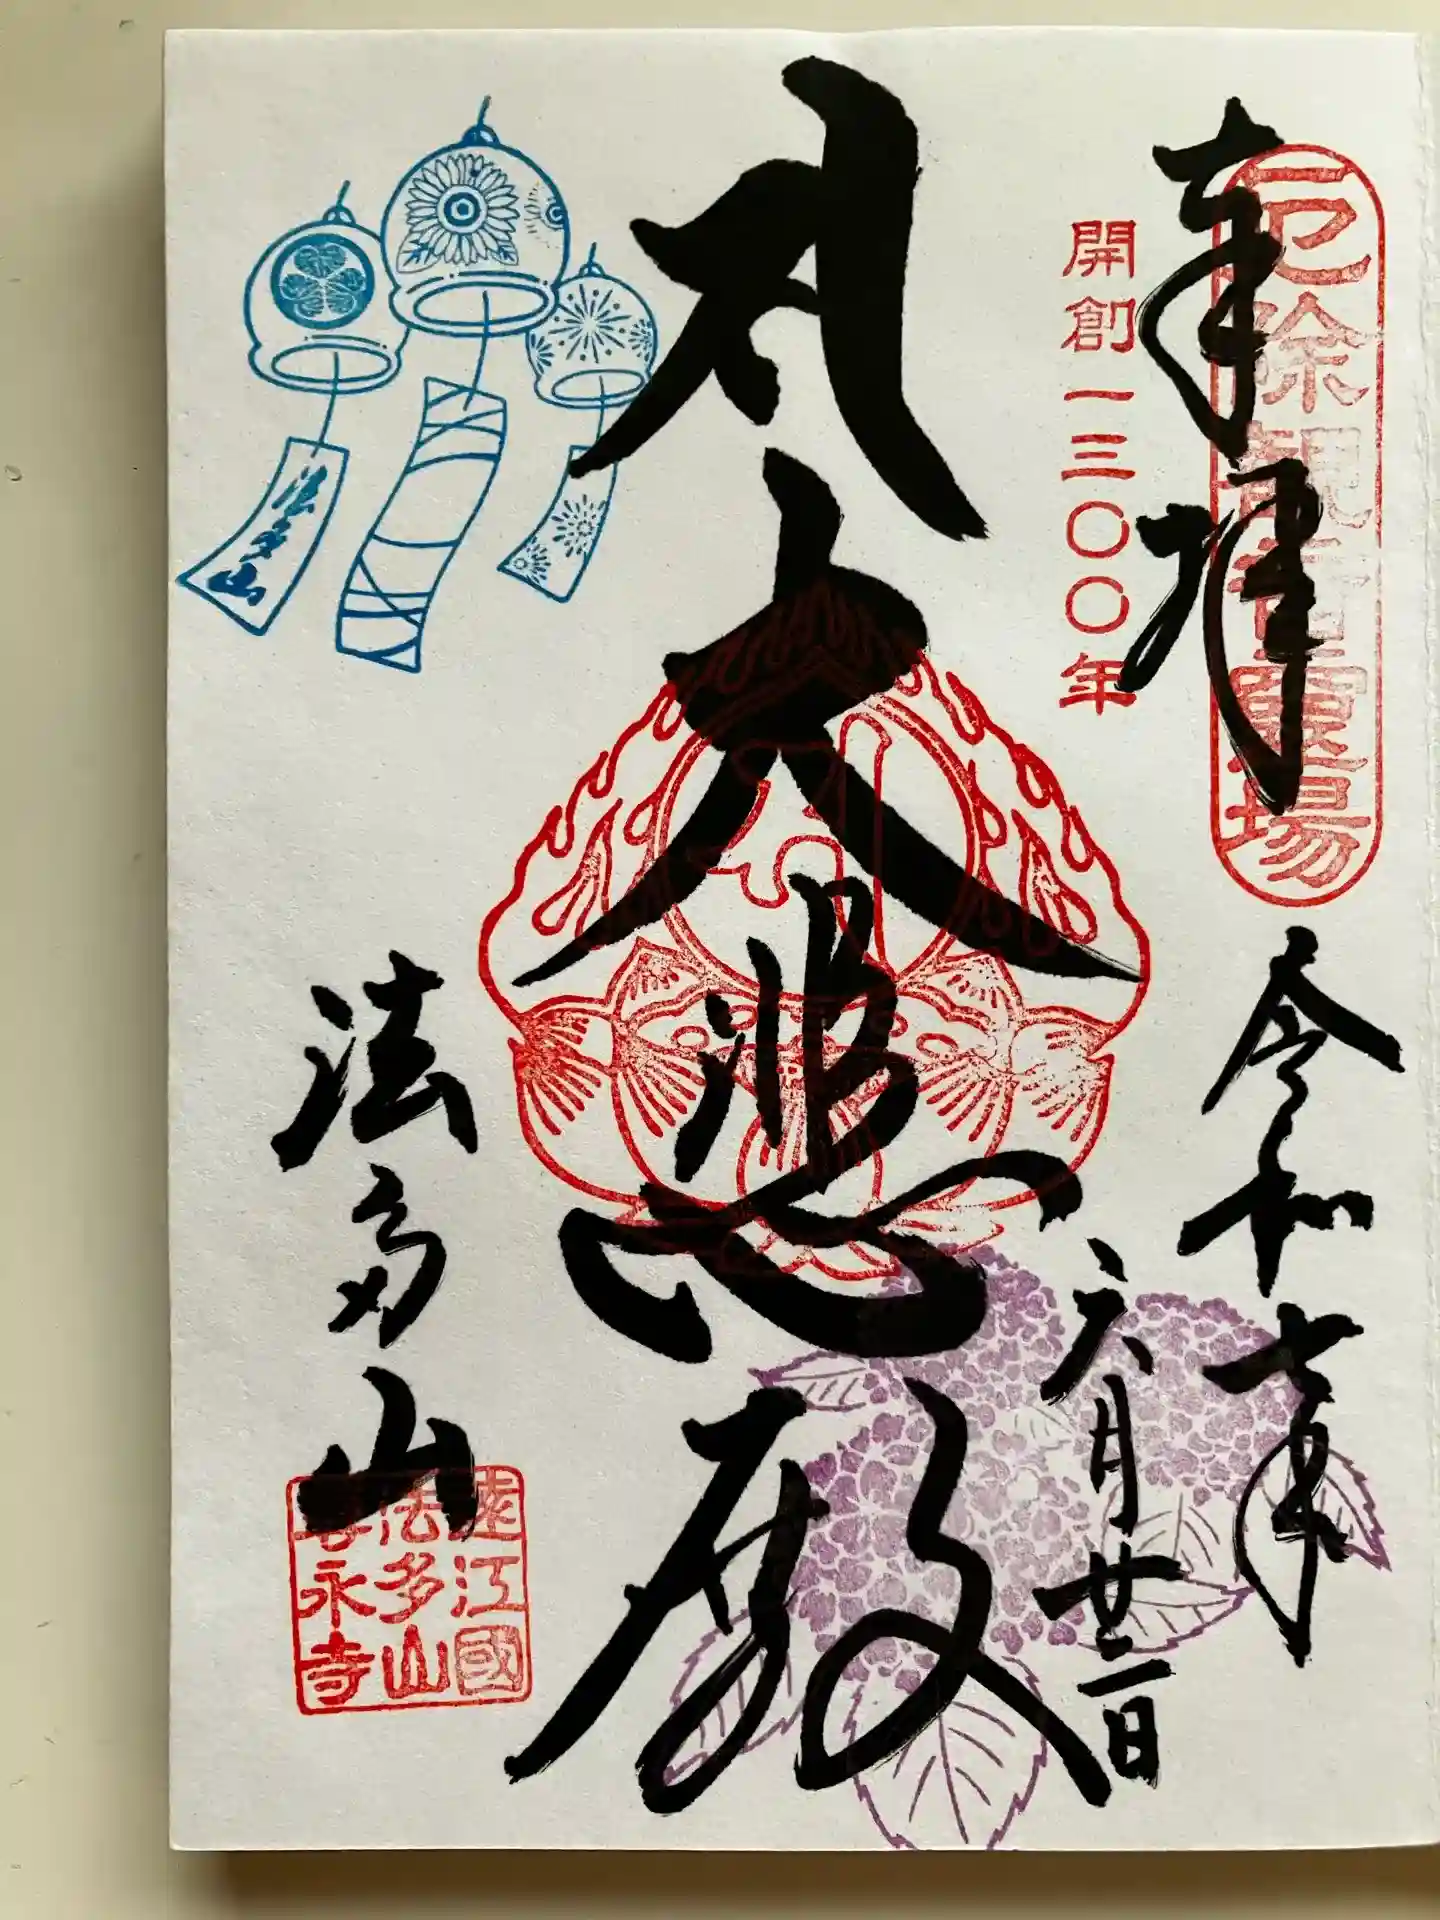 厄除観音霊場
奉拝
開創一三〇〇年
令和七年
六月廿二日
大悲殿
法多山
遠江國
法多山
尊永寺
法多山